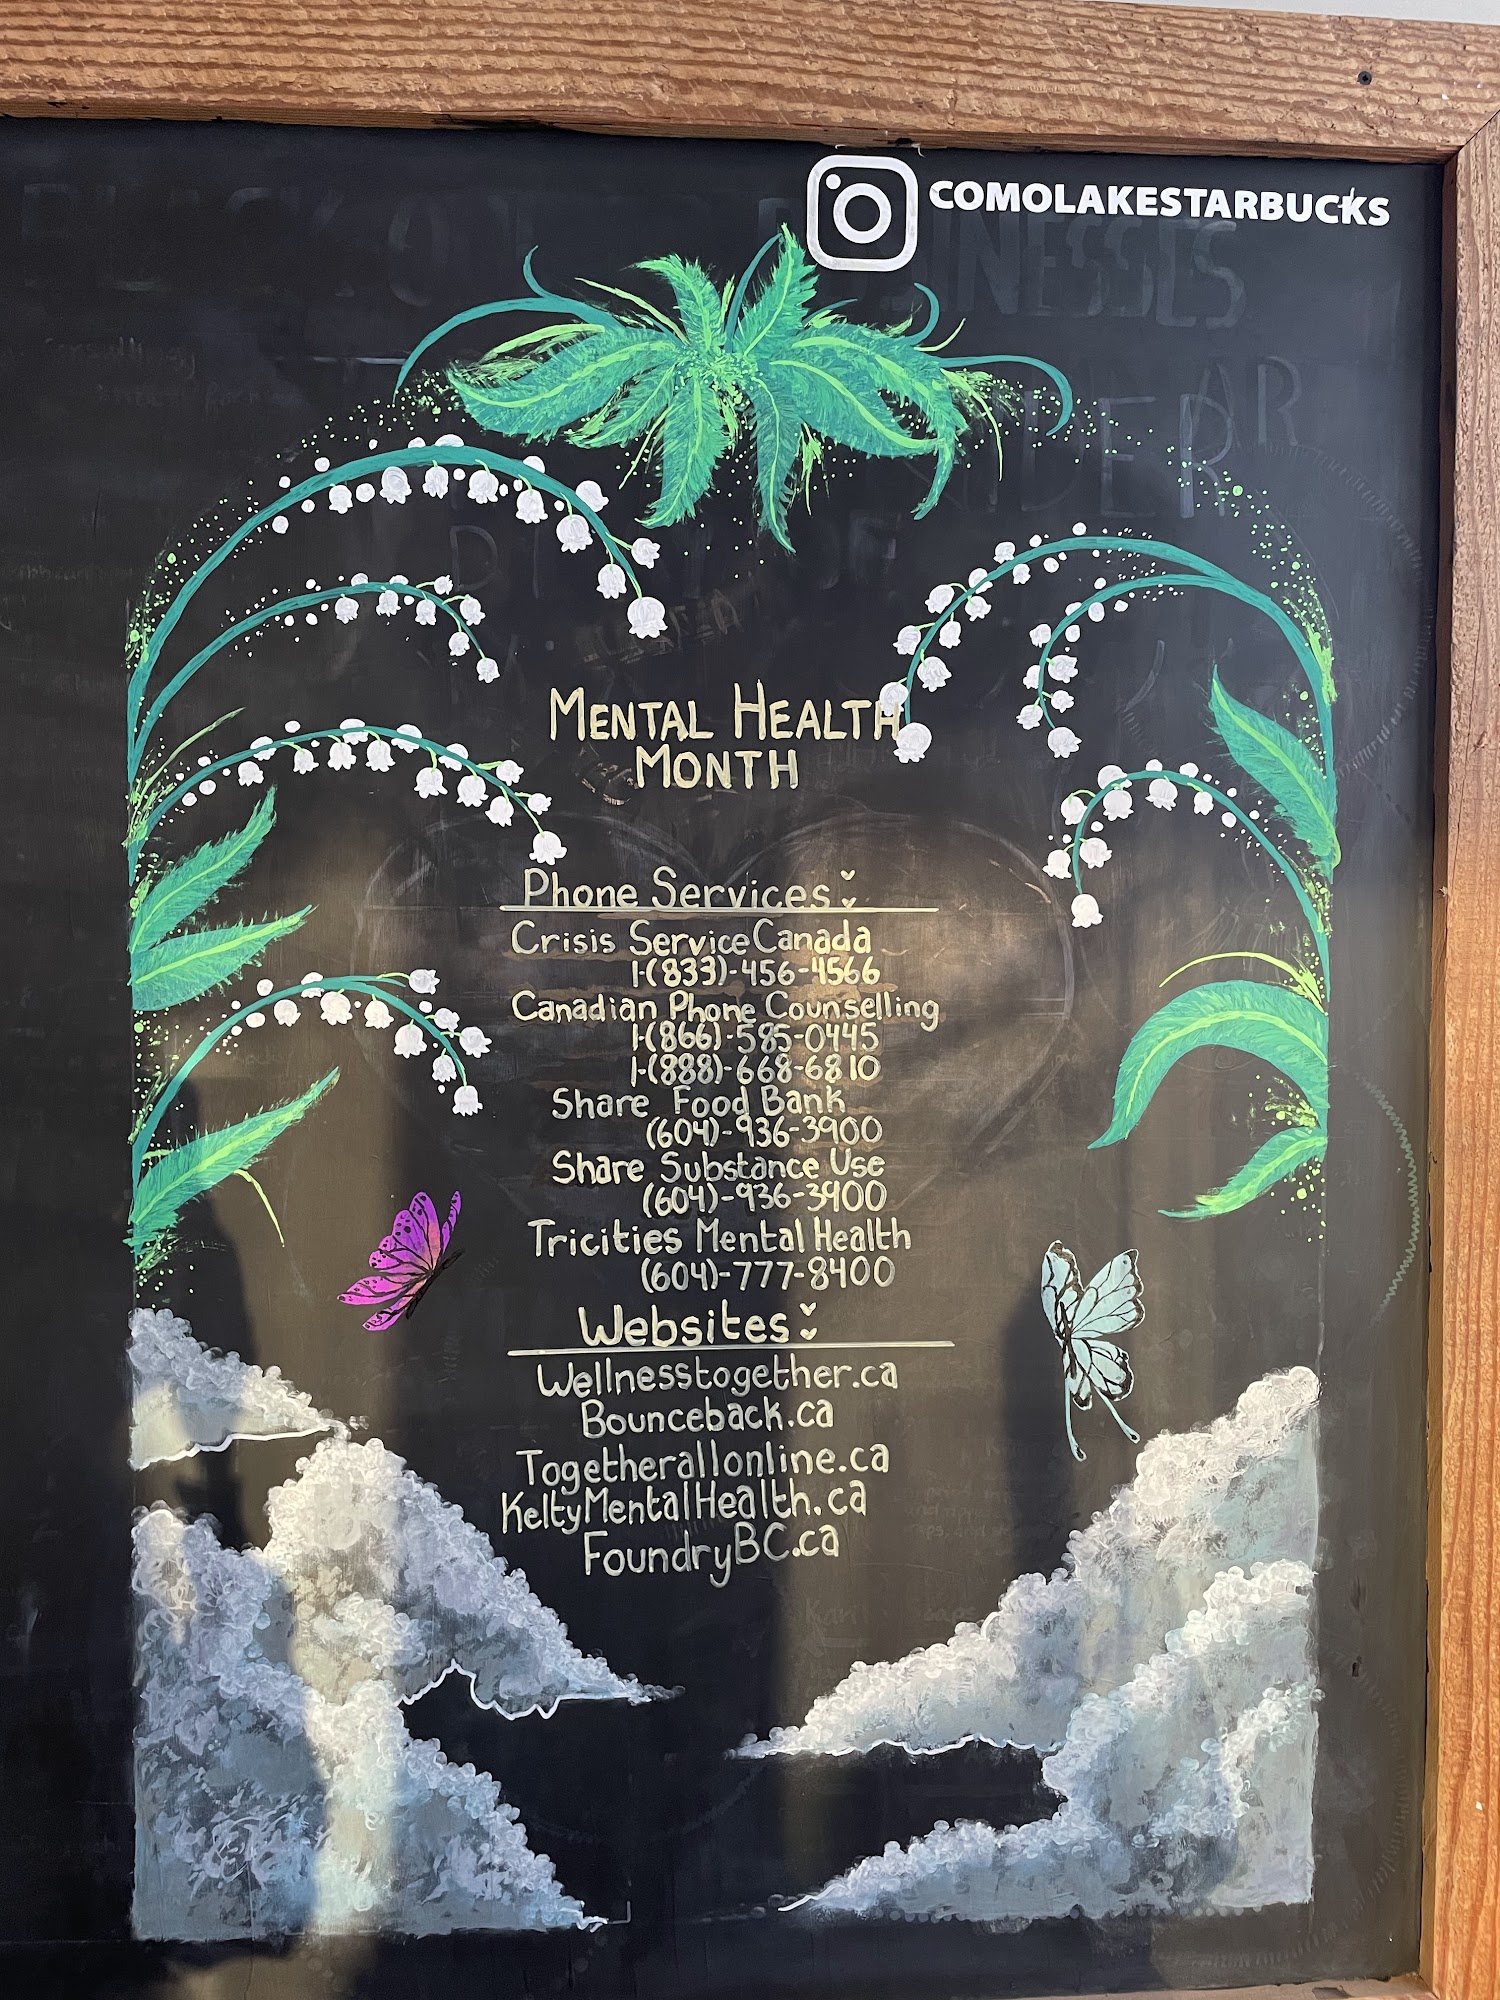 COMOLAKESTARBUCKS
MENTAL HEALTH
MONTH
Phone Services:
Crisis Service Canada
1-(833)-456-4566
Canadian Phone Counselling
1-(866)-585-0445
1-(888)-668-6810
Share Food Bank
(604)-936-3900
Share Substance Use
(604)-936-3900
Tricities Mental Health
(604)-777-8400
Websites:
Wellnesstogether.ca
Bounceback.ca
Togetherallonline.ca
KeltyMentalHealth.ca
FoundryBC.ca